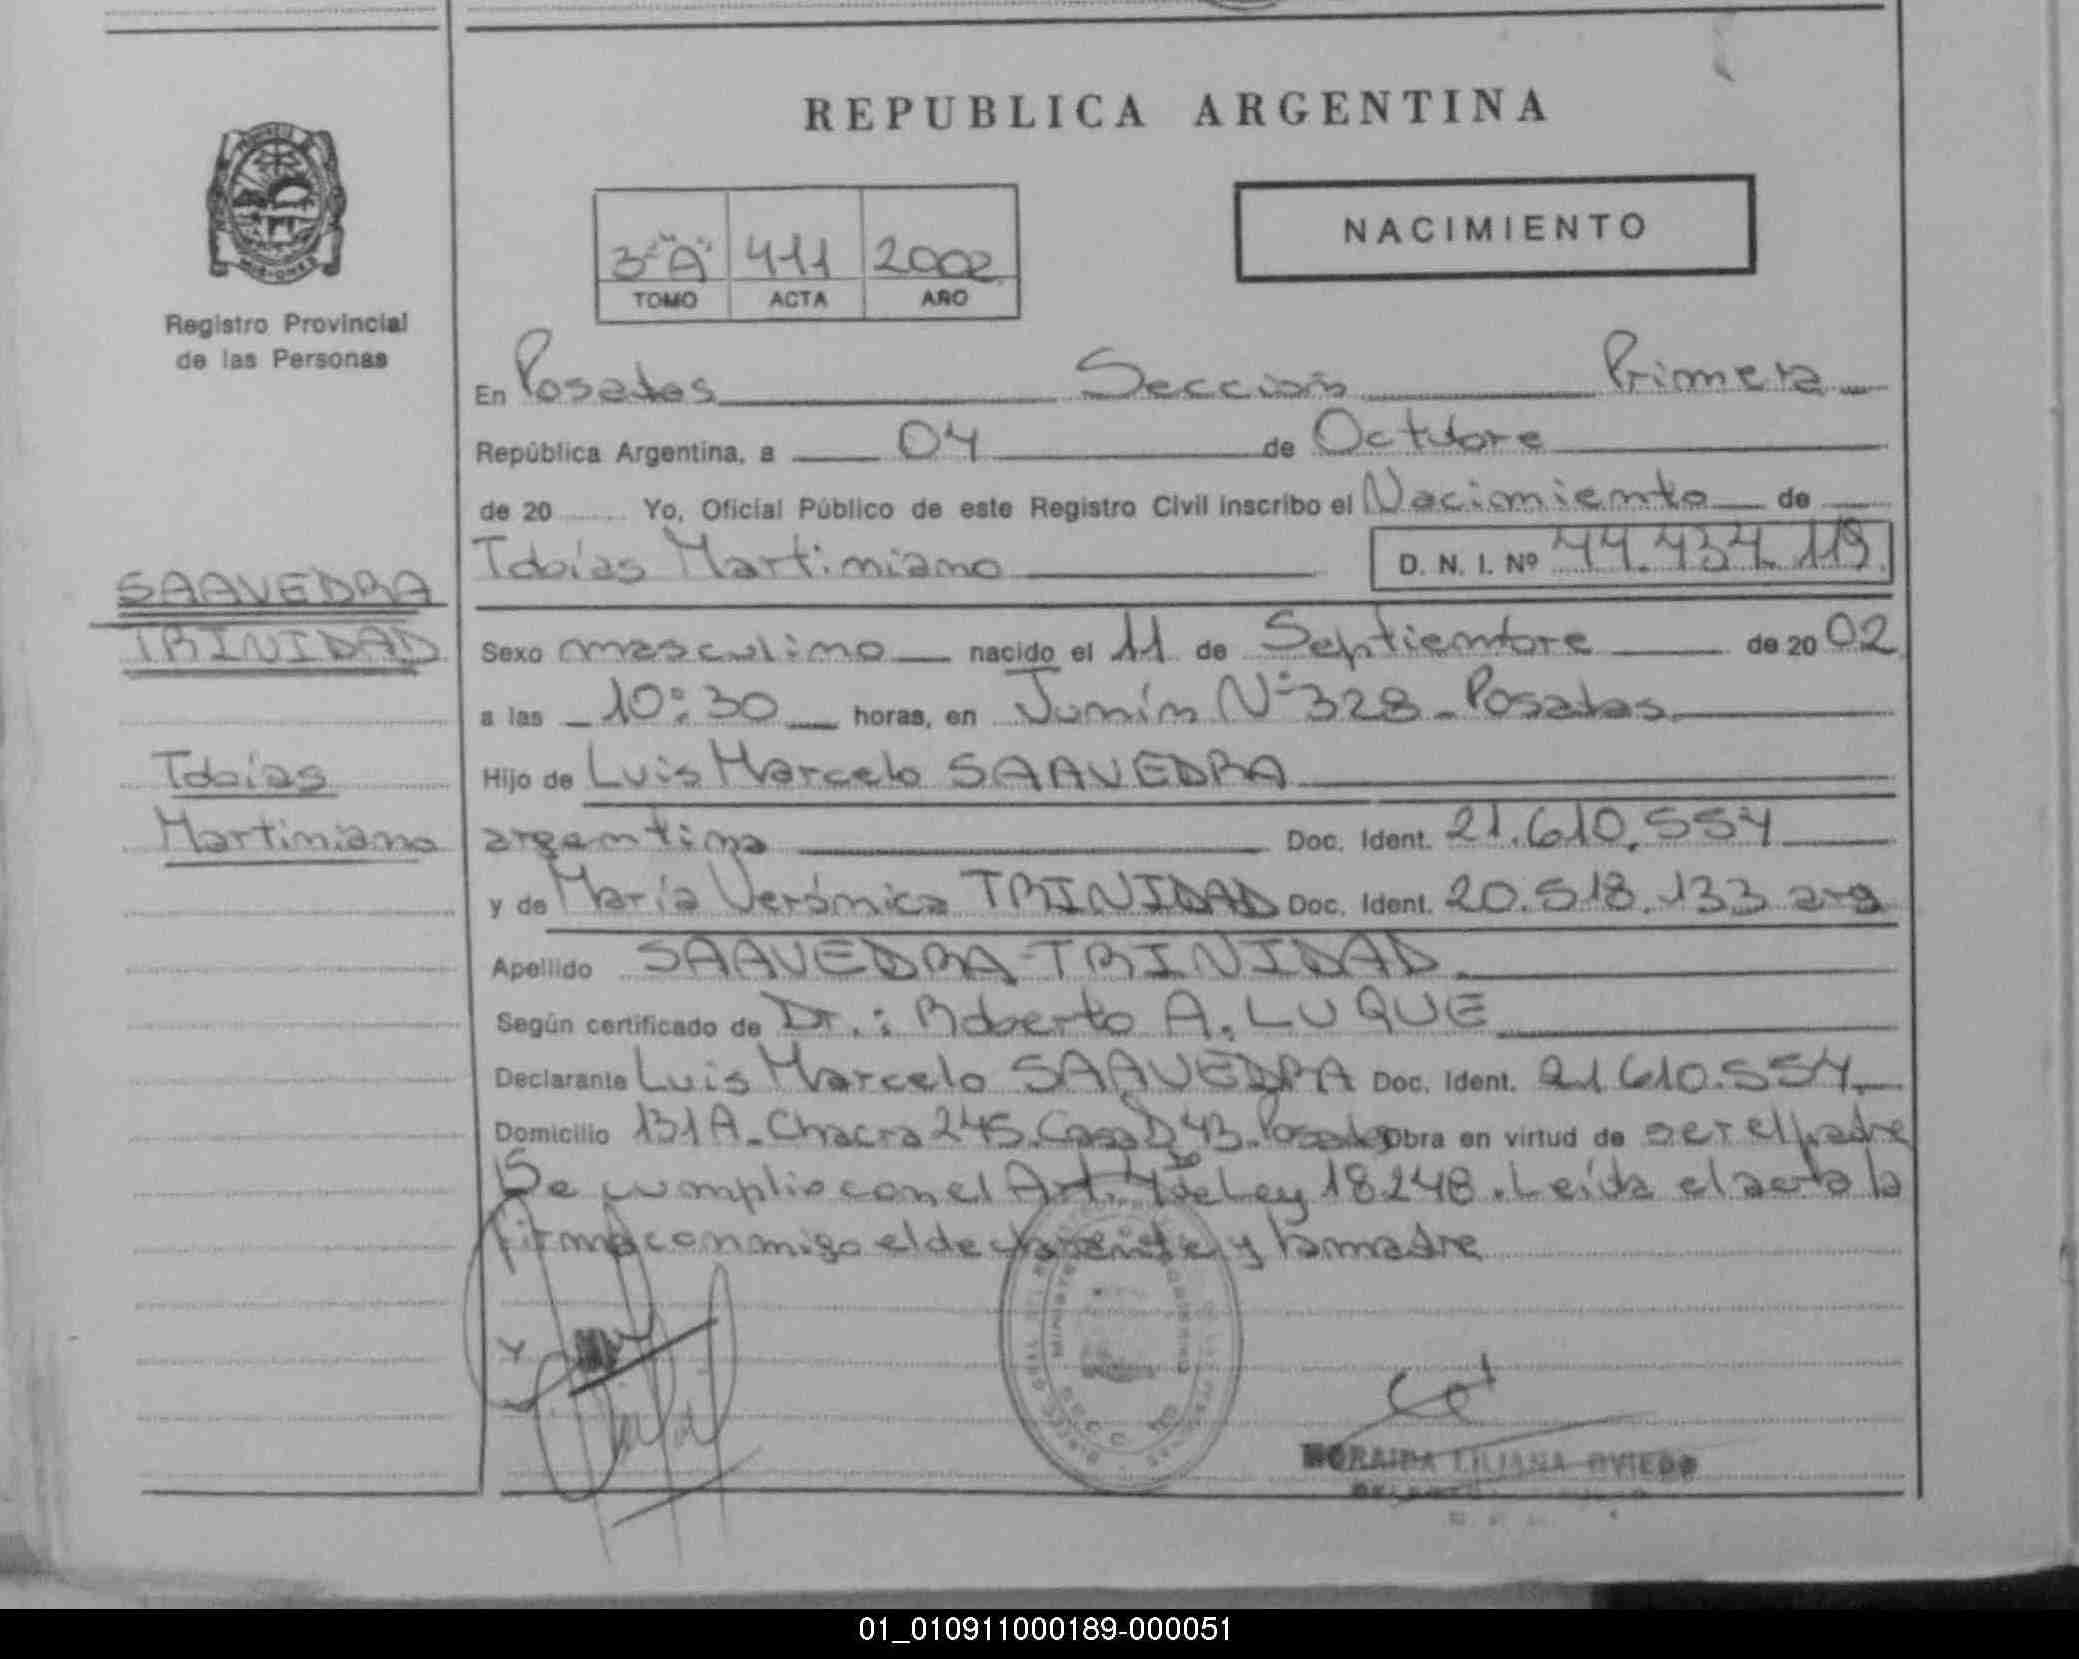 REPUBLICA ARGENTINA
NACIMIENTO
3º "A" 411 2002
TOMO ACTA AÑO
Registro Provincial
de las Personas
En Posadas Sección Primera
República Argentina, a 04 de Octubre
de 20 Yo, Oficial Público de este Registro Civil inscribo el Nacimiento de
Tobías Martiniano D. N. I. Nº 44.434.119
SAAVEDRA
TRINIDAD
Sexo masculino nacido el 11 de Septiembre de 20 02
a las 10:30 horas, en Junín Nº 328 - Posadas
Tobías
Martiniano
Hijo de Luis Marcelo SAAVEDRA
argentina Doc. Ident. 21.610.554
y de María Verónica TRINIDAD Doc. Ident. 20.518.133 arg
Apellido SAAVEDRA TRINIDAD
Según certificado de Dr.: Roberto A. LUQUE
Declarante Luis Marcelo SAAVEDRA Doc. Ident. 21.610.554
Domicilio 131 A - Chacra 245 - Casa D 43 - Posadas Obra en virtud de ser el padre
Se cumplio con el Art. de Ley 18.248. Leída el acta la
firma conmigo el declarante y la madre
LILIANA OVIEDO
01_010911000189-000051